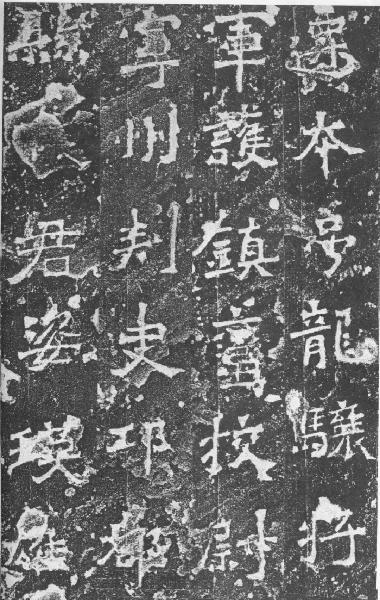 遷本号龍驤將
軍護鎮蠻挍尉
寧州刺史邛都
縣侯君姿瑛雄